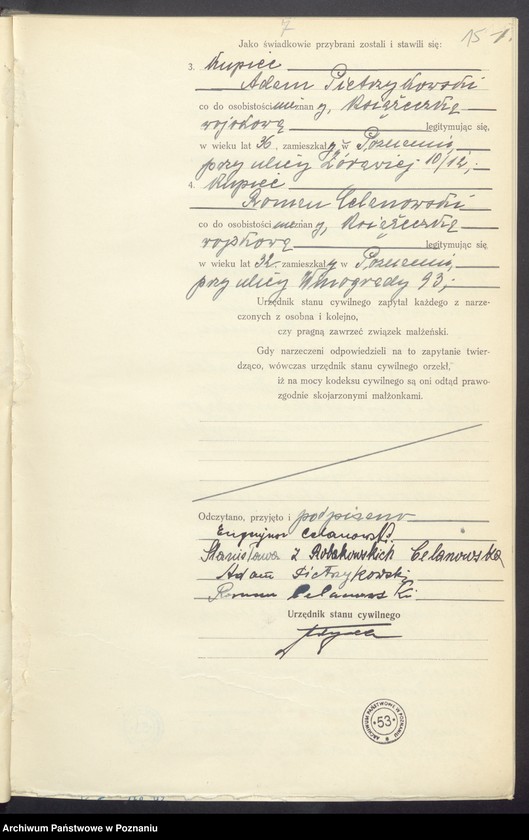 7
15
Jako świadkowie przybrani zostali i stawili się:
3. Kupiec
Adam Pietrzykowski
co do osobistości nieznany, książeczką
wojskową legitymując się,
w wieku lat 36, zamieszkały w Poznaniu,
przy ulicy Żórawiej 10/12,;
4. Kupiec
Roman Celanowski
co do osobistości nieznany, książeczką
wojskową legitymując się
w wieku lat 32 zamieszkały w Poznaniu,
przy ulicy Winogrady 93,;
Urzędnik stanu cywilnego zapytał każdego z narze-
czonych z osobna i kolejno,
czy pragną zawrzeć związek małżeński.
Gdy narzeczeni odpowiedzieli na to zapytanie twier-
dząco, wówczas urzędnik stanu cywilnego orzekł,
iż na mocy kodeksu cywilnego są oni odtąd prawo-
zgodnie skojarzonymi małżonkami.
Odczytano, przyjęto i podpisano
Celanowski
Stanisława z Robakowskich Celanowska
Adam Pietrzykowski
Roman Celanowski
Urzędnik stanu cywilnego
ARCHIWUM PAŃSTWOWE W POZNANIU
53
Archiwum Państwowe w Poznaniu